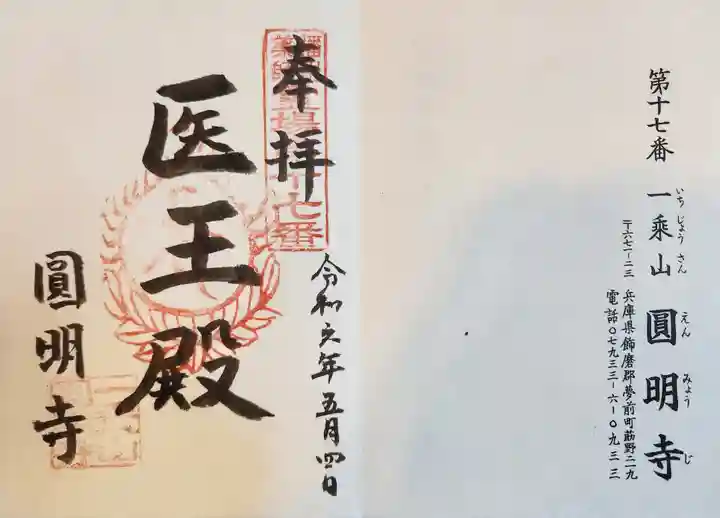 第十七番 一乗山 圓明寺
いちじょうさん えんみょうじ
〒六七一-二三 兵庫県飾磨郡夢前町莇野二一九
電話〇七九三三-六-〇九三三
奉拝
令和六年五月四日
医王殿
圓明寺